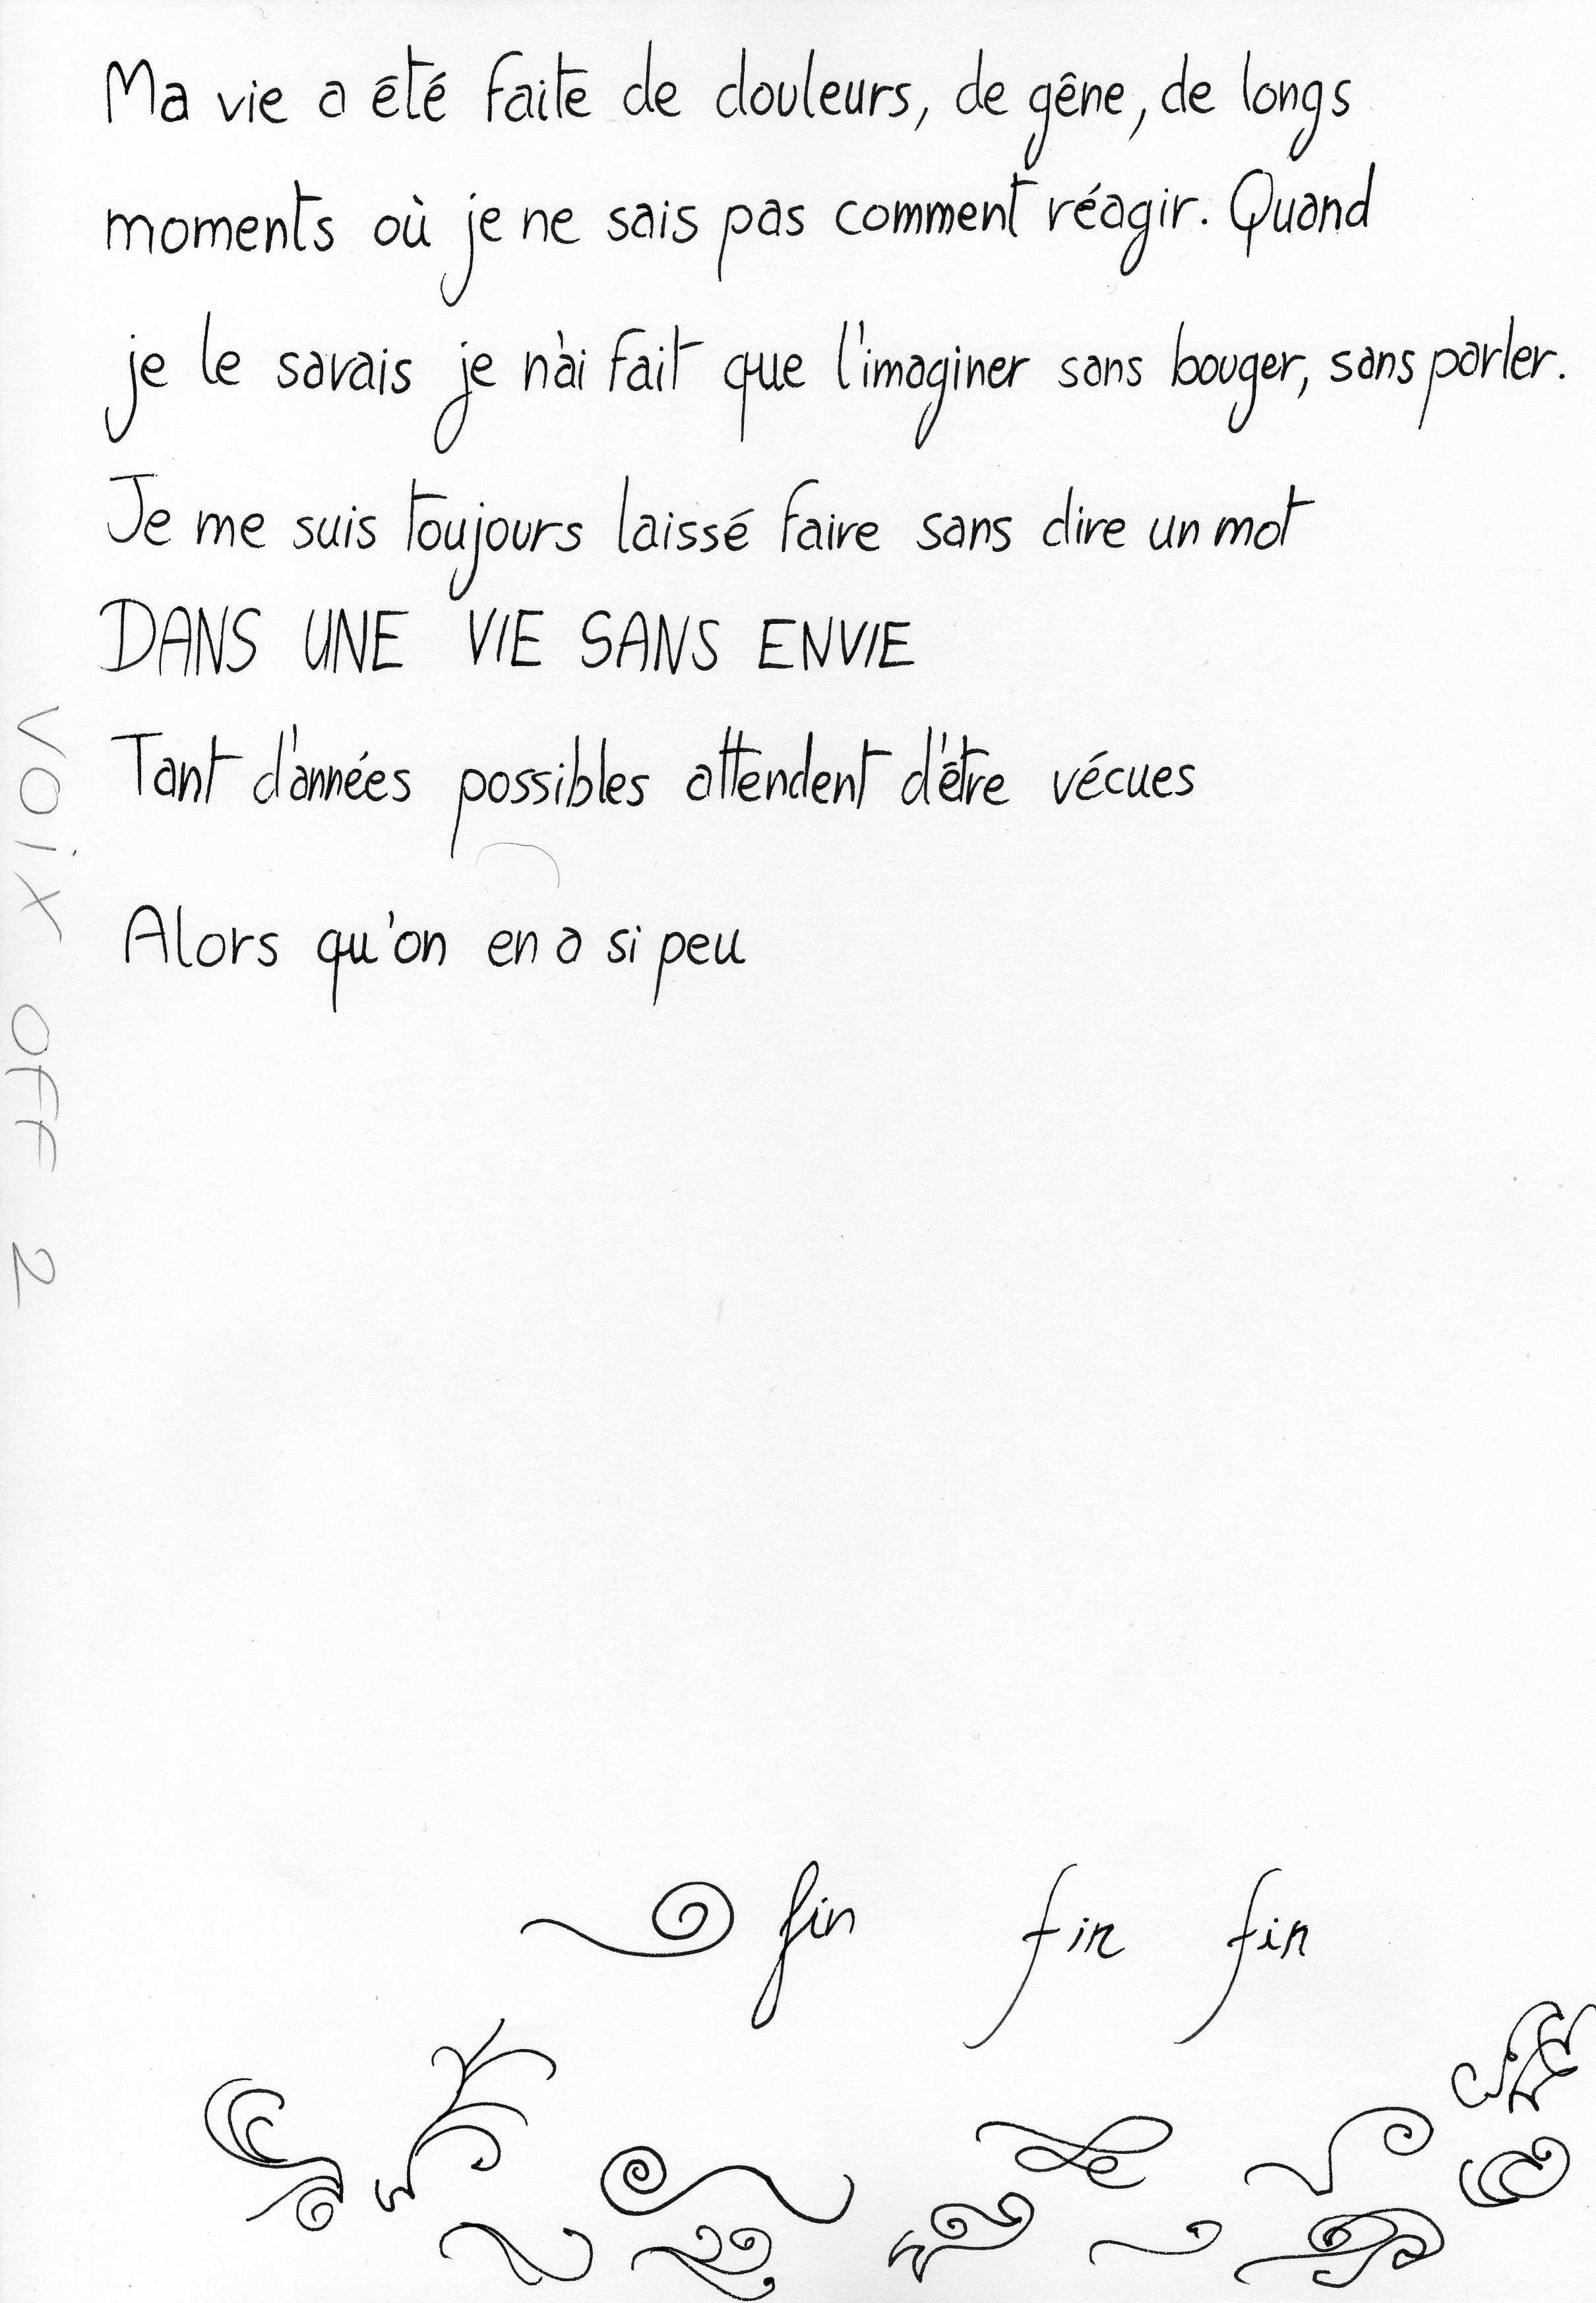 Ma vie a été faite de douleurs, de gêne, de longs
moments où je ne sais pas comment réagir. Quand
je le savais je n'ai fait que l'imaginer sans bouger, sans parler.
Je me suis toujours laissé faire sans dire un mot
DANS UNE VIE SANS ENVIE
Tant d'années possibles attendent d'être vécues
Alors qu'on en a si peu
VOIX OFF 2
fin fin fin